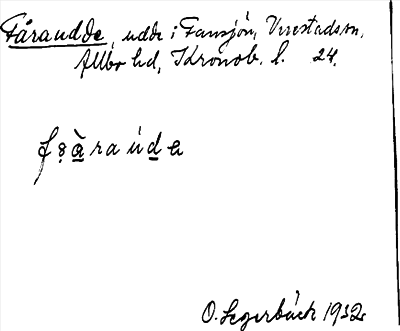 Fåraudde, udde i Fansjön, Virestads sn,
Allbo hd, Kronob. l. 24.
O. Segerbäck 1932